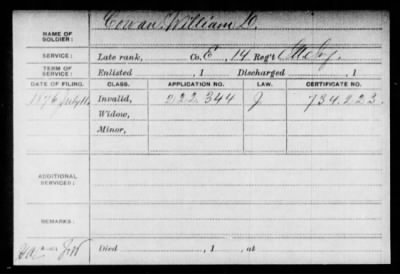 NAME OF SOLDIER: Cowan, William D.
SERVICE: Late rank, Co. E, 14 Reg't
TERM OF SERVICE: Enlisted , 1 Discharged , 1
DATE OF FILING. CLASS. APPLICATION NO. CERTIFICATE NO.
1876 July 11, Invalid, 222.344 J 734.223.
Widow,
Minor,
ADDITIONAL SERVICES:
REMARKS:
Died , 1 , at